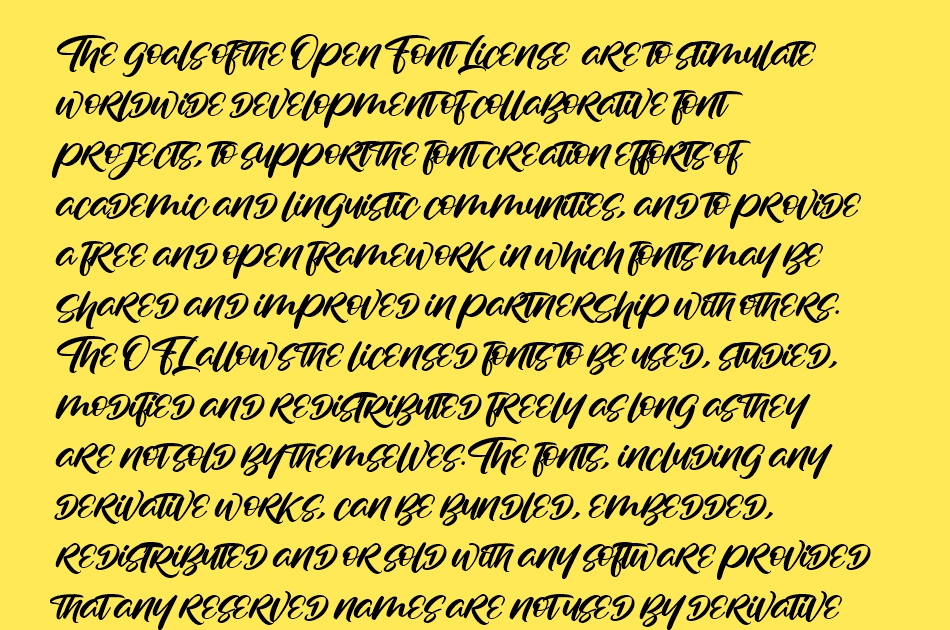 The goals of the Open Font License are to stimulate
worldwide development of collaborative font
projects, to support the font creation efforts of
academic and linguistic communities, and to provide
a free and open framework in which fonts may be
shared and improved in partnership with others.
The OFL allows the licensed fonts to be used, studied,
modified and redistributed freely as long as they
are not sold by themselves. The fonts, including any
derivative works, can be bundled, embedded,
redistributed and or sold with any software provided
that any reserved names are not used by derivative